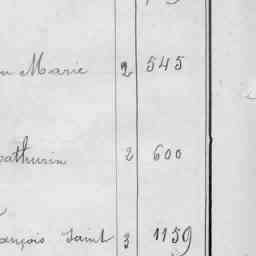 Marie 2 545
athurin 2 600
ançois Saint 3 1159